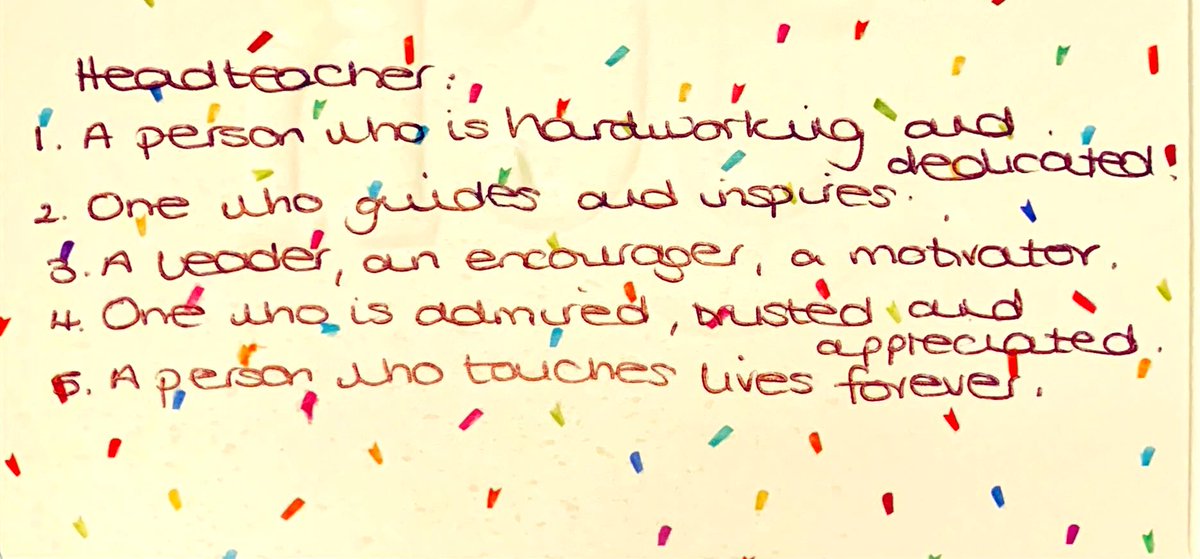 Headteacher:
1. A person who is hardworking and
dedicated!
2. One who guides and inspires.
3. A leader, an encourager, a motivator.
4. One who is admired, trusted and
appreciated.
5. A person who touches lives forever.